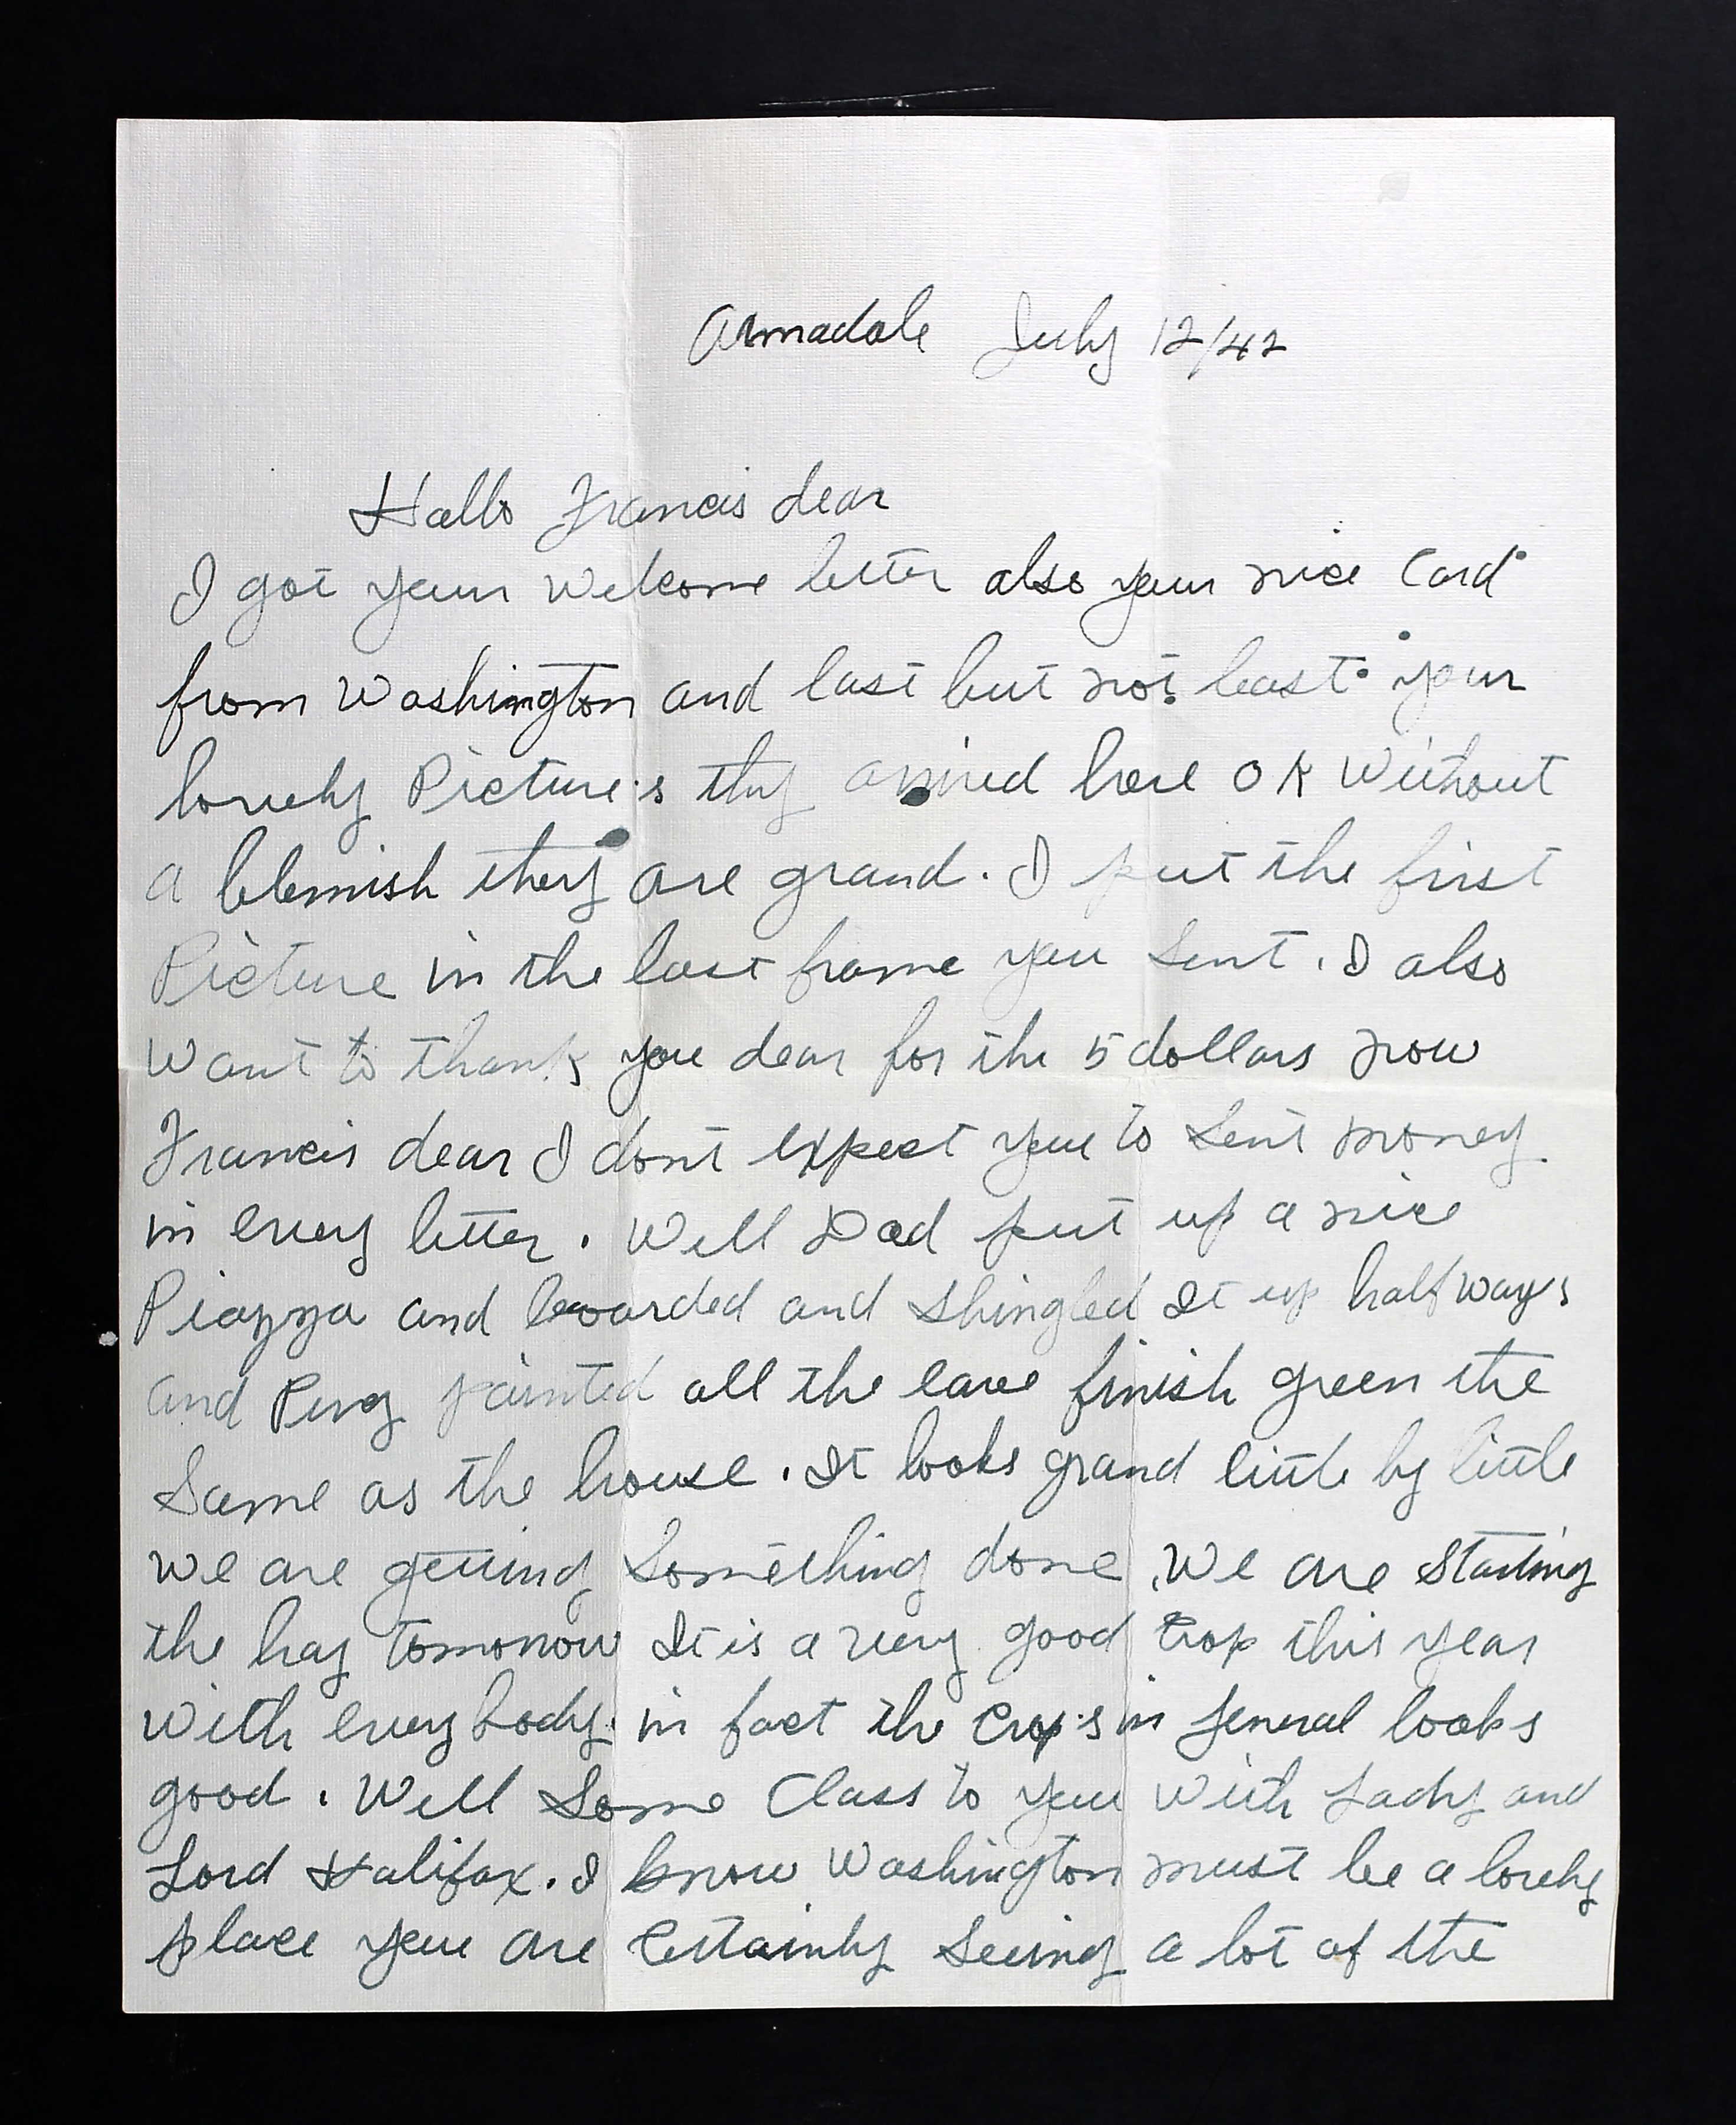 Armadale July 12/42
Hallo Francis dear
I got your welcome letter also your nice Card
from Washington and last but not least your
lovely Picture's they arrived here OK Without
a blemish they are grand. I put the first
Picture in the last frame you Sent. I also
Want to thank you dear for the 5 dollars now
Francis dear I dont expect you to Sent money
in every letter. Well Dad put up a nice
Piazza and boarded and Shingled It up halfways
and Percy painted all the eave finish green the
Same as the house. It looks grand little by little
We are getting Something done. We are Starting
the hay tomorrow It is a very good Crop this year
With everybody in fact the Crop's in general looks
good. Well Some Class to you With Lady and
Lord Halifax. I know Washington must be a lovely
place you are Certainly Seeing a lot of the